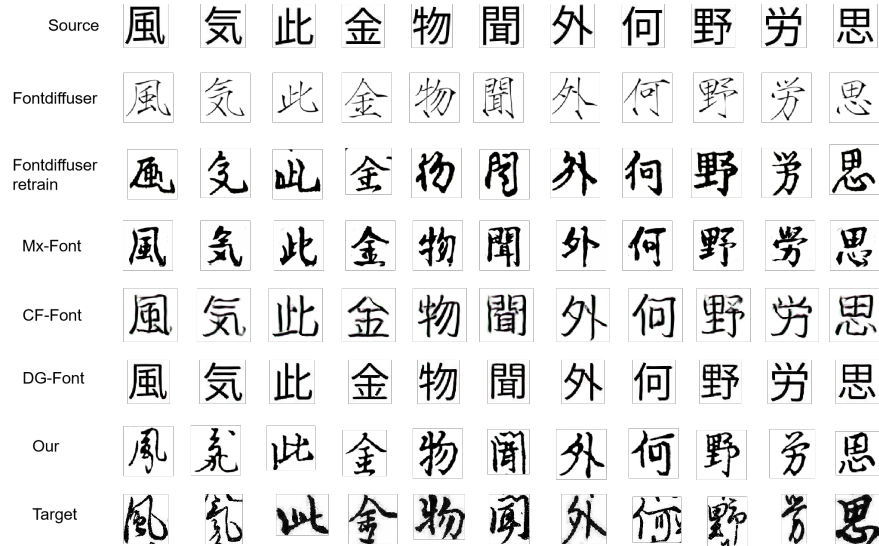 Source 風 気 此 金 物 聞 外 何 野 労 思
Fontdiffuser 風 気 此 金 物 聞 外 何 野 労 思
Fontdiffuser
retrain 風 気 此 金 物 聞 外 何 野 労 思
Mx-Font 風 気 此 金 物 聞 外 何 野 労 思
CF-Font 風 気 此 金 物 聞 外 何 野 労 思
DG-Font 風 気 此 金 物 聞 外 何 野 労 思
Our 風 気 此 金 物 聞 外 何 野 労 思
Target 風 気 此 金 物 聞 外 何 野 労 思